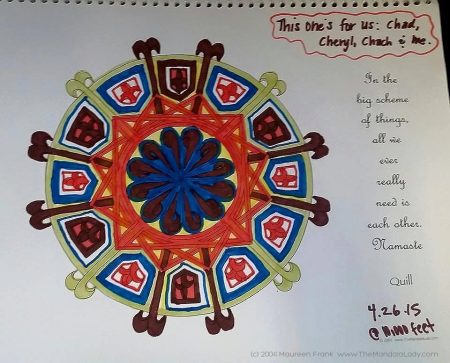 This one's for us: Chad,
Cheryl, Chach & me.
In the
big scheme
of things,
all we
ever
really
need is
each other.
Namaste
Quill
4.26.15
(c) 2004 Maureen Frank www.TheMandalaLady.com